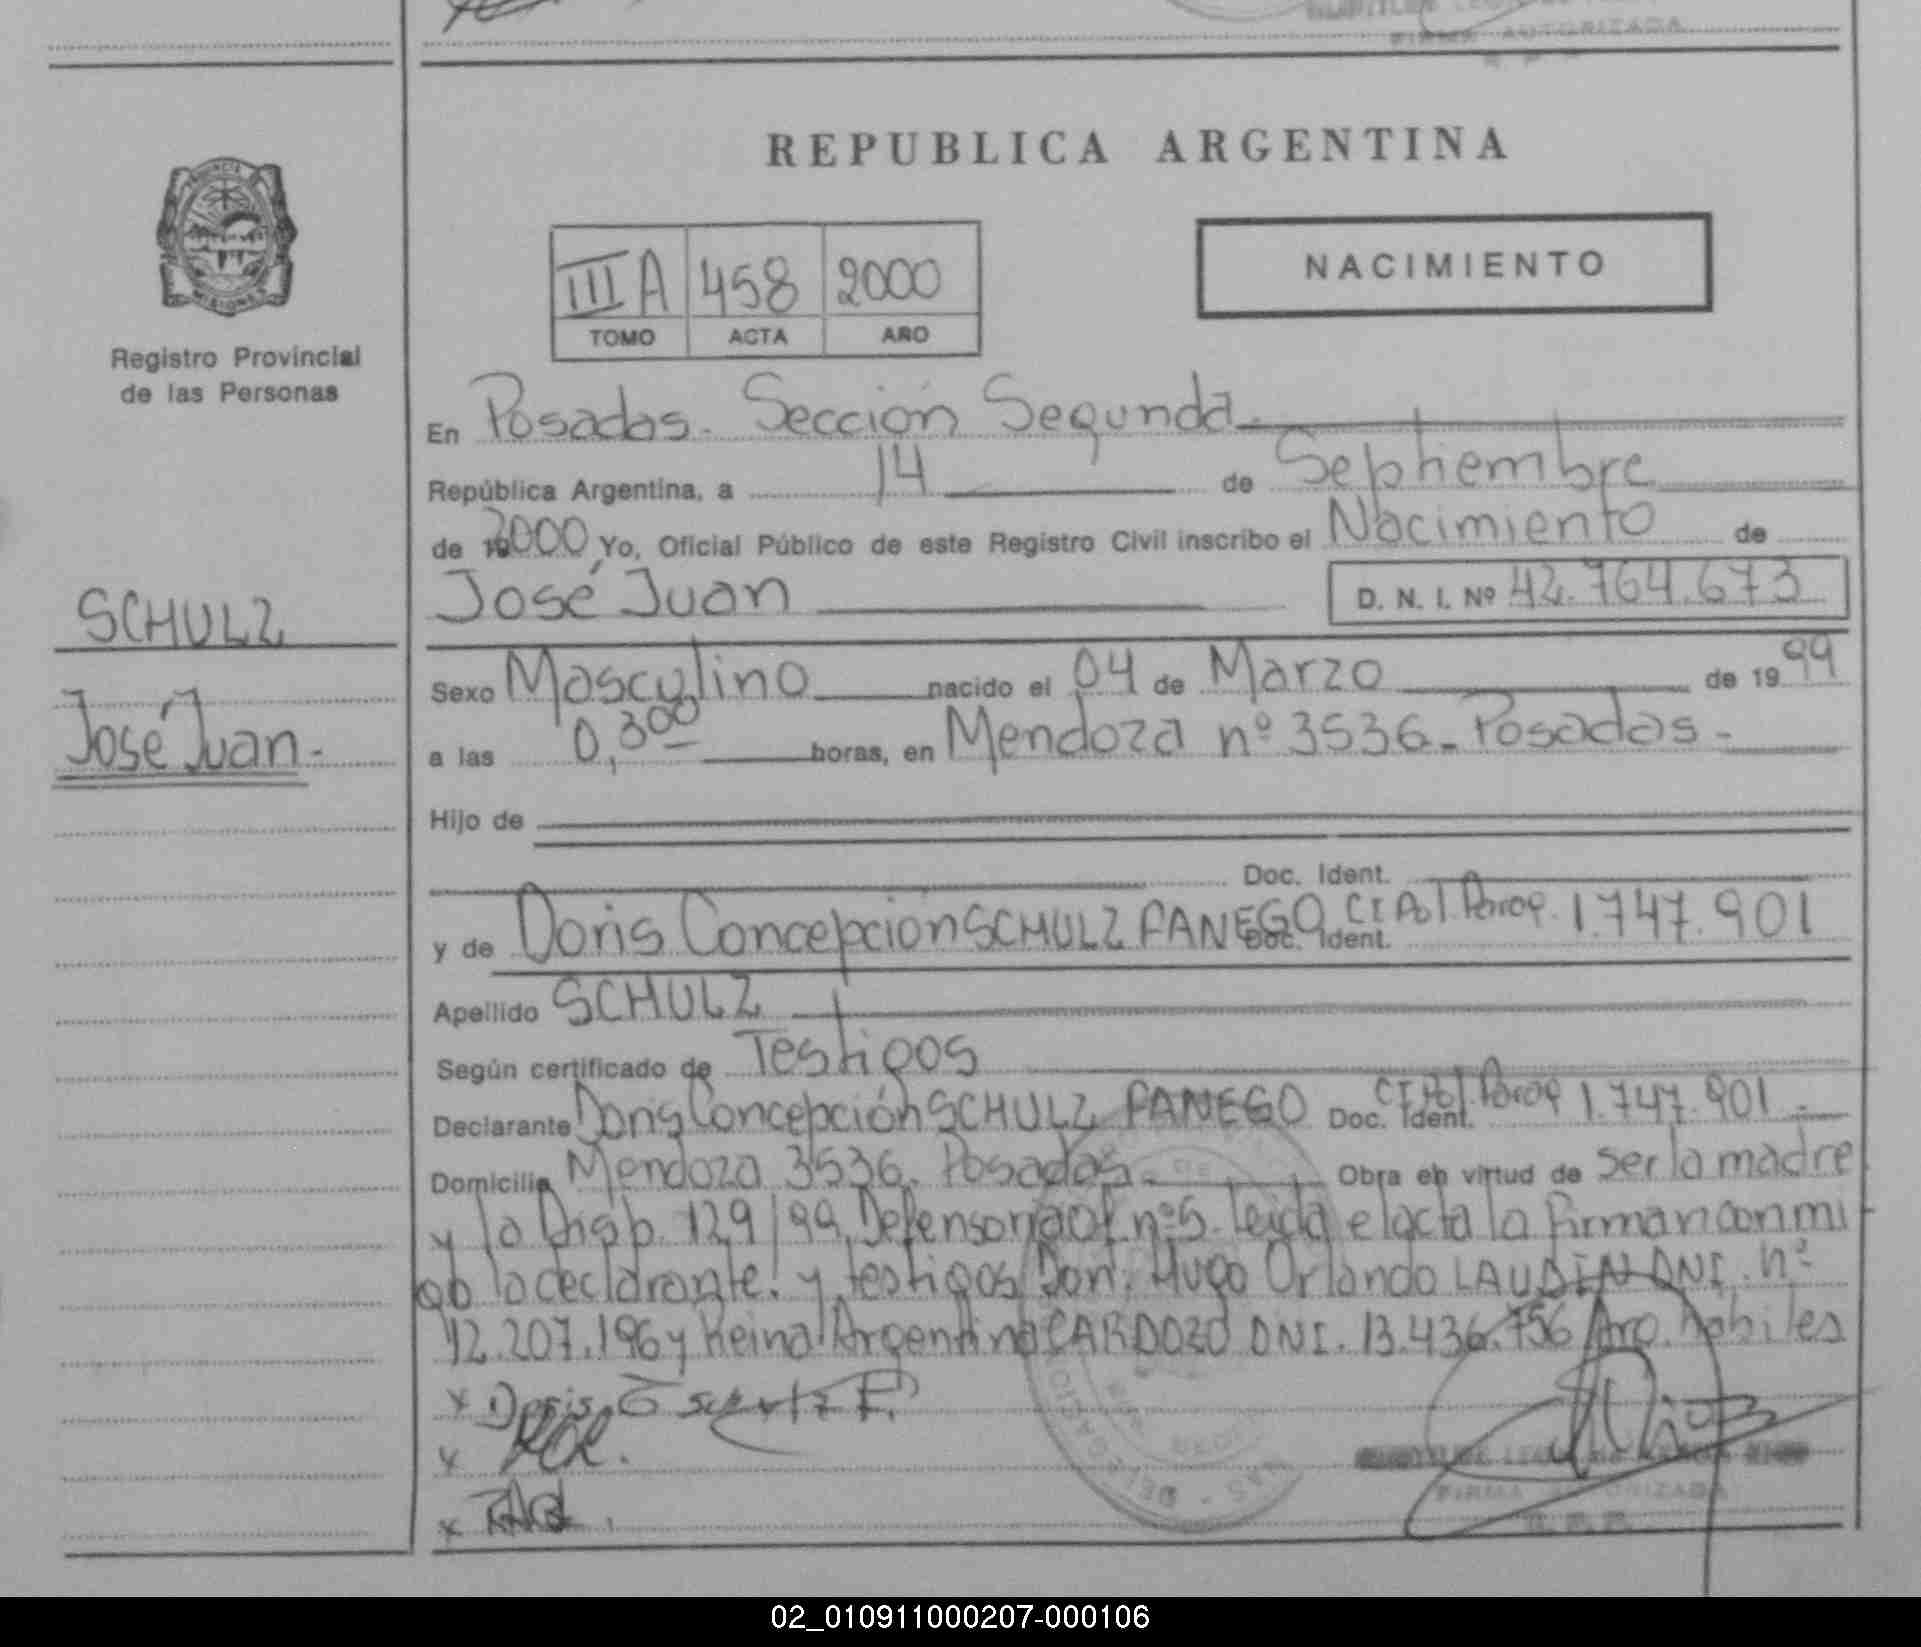 FIRMA AUTORIZADA
REPUBLICA ARGENTINA
PROVINCIA
MISIONES
Registro Provincial
de las Personas
III A 458 2000
TOMO ACTA AÑO
NACIMIENTO
En Posadas. Sección Segunda.
República Argentina, a 14 de Septiembre
de 2000 Yo, Oficial Público de este Registro Civil inscribo el Nacimiento de
José Juan D. N. I. Nº 42.764.673
SCHULZ
José Juan.-
Sexo Masculino nacido el 04 de Marzo de 1999
a las 0,300 horas, en Mendoza nº 3536. Posadas.-
Hijo de
Doc. Ident.
y de Doris Concepción SCHULZ FANEGO Doc. Ident. CI Pol. Parag. 1.747.901
Apellido SCHULZ
Según certificado de Testigos
Declarante Doris Concepción SCHULZ FANEGO Doc. Ident. CI Pol. Parag 1.747.901.-
Domicilio Mendoza 3536. Posadas.- Obra en virtud de ser la madre
y la Disp. 129/99, Defensoria Of. nº 5. Leida el acta la firman con mi
go la declarante. y testigos Don. Hugo Orlando LAUDIN DNI. nº
12.207.196 y Reina Argentina CARDOZO DNI. 13.436.756 Arg. habiles
x Doris C Schulz F.
x
x
FIRMA AUTORIZADA
R. P. P.
02_010911000207-000106